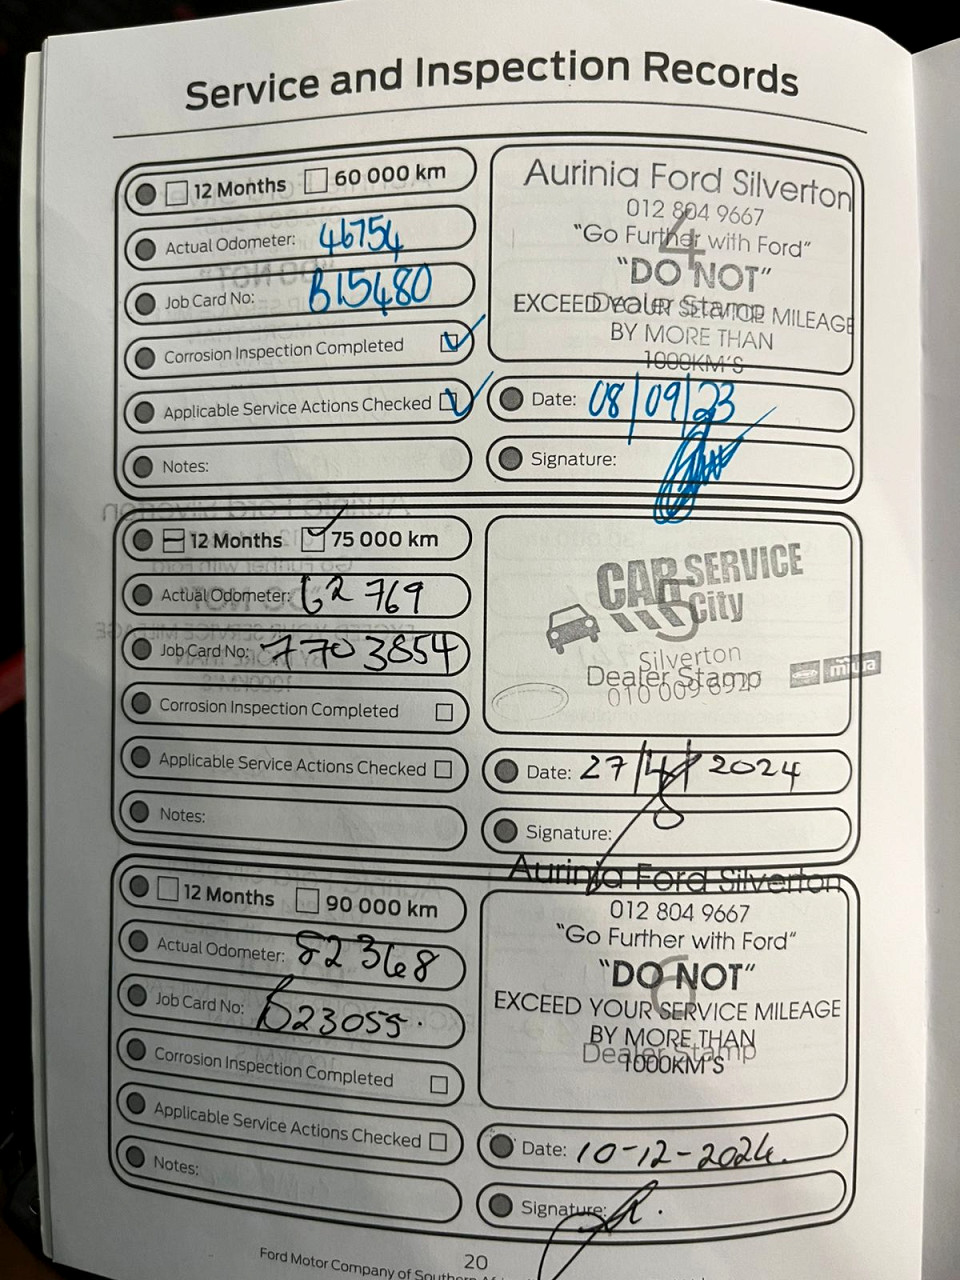 Service and Inspection Records
12 Months 60 000 km
Actual Odometer: 46754
Job Card No: B15480
Corrosion Inspection Completed
Applicable Service Actions Checked
Notes:
Aurinia Ford Silverton
012 804 9667
"Go Further with Ford"
4
"DO NOT"
EXCEED YOUR SERVICE MILEAGE
Dealer Stamp
BY MORE THAN
1000KM'S
Date: 08/09/23
Signature:
12 Months 75 000 km
Actual Odometer: 62 769
Job Card No: 7703854
Corrosion Inspection Completed
Applicable Service Actions Checked
Notes:
CAR SERVICE
City
5
Silverton
Dealer Stamp
010 009
Date: 27/4/2024
Signature:
12 Months 90 000 km
Actual Odometer: 82368
Job Card No: B23055.
Corrosion Inspection Completed
Applicable Service Actions Checked
Notes:
Aurinia Ford Silverton
012 804 9667
"Go Further with Ford"
"DO NOT"
6
EXCEED YOUR SERVICE MILEAGE
BY MORE THAN
Dealer Stamp
1000KM'S
Date: 10-12-2024.
Signature:
20
Ford Motor Company of Southern